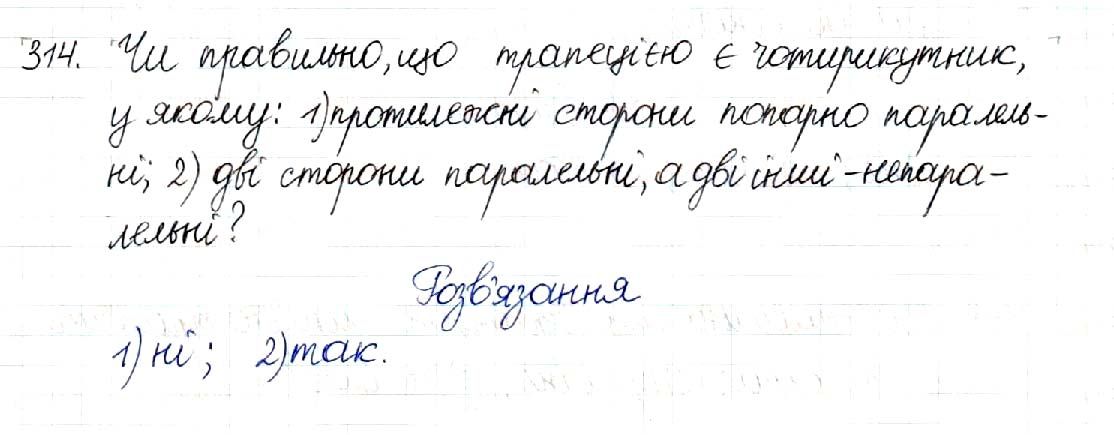 314. Чи правильно, що трапецією є чотирикутник,
у якому: 1) протилежні сторони попарно паралель-
ні; 2) дві сторони паралельні, а дві інші - непара-
лельні?
Розв'язання
1) ні; 2) так.